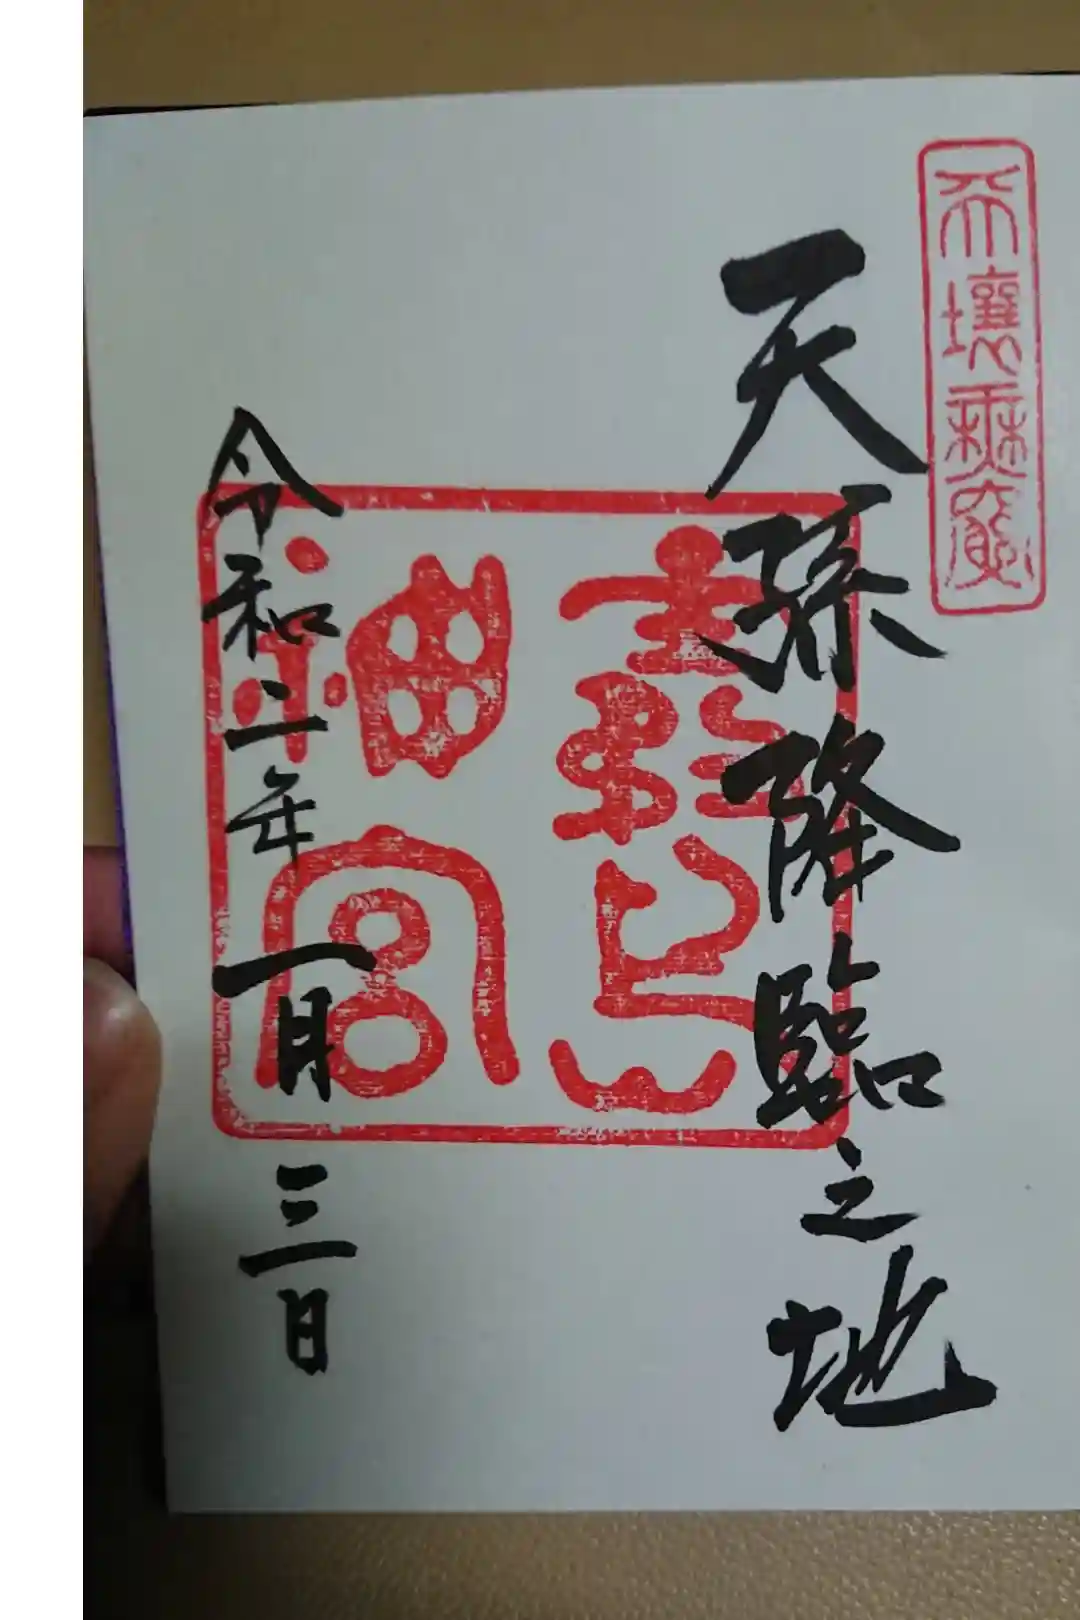 天壤無窮
天孫降臨之地
霧島
神宮
令和二年一月三日